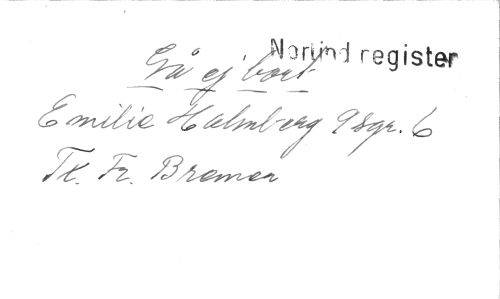 Norlind register
Gå ej bort
Emilie Holmberg 9 sgr. 6
Tk. Fr. Bremer